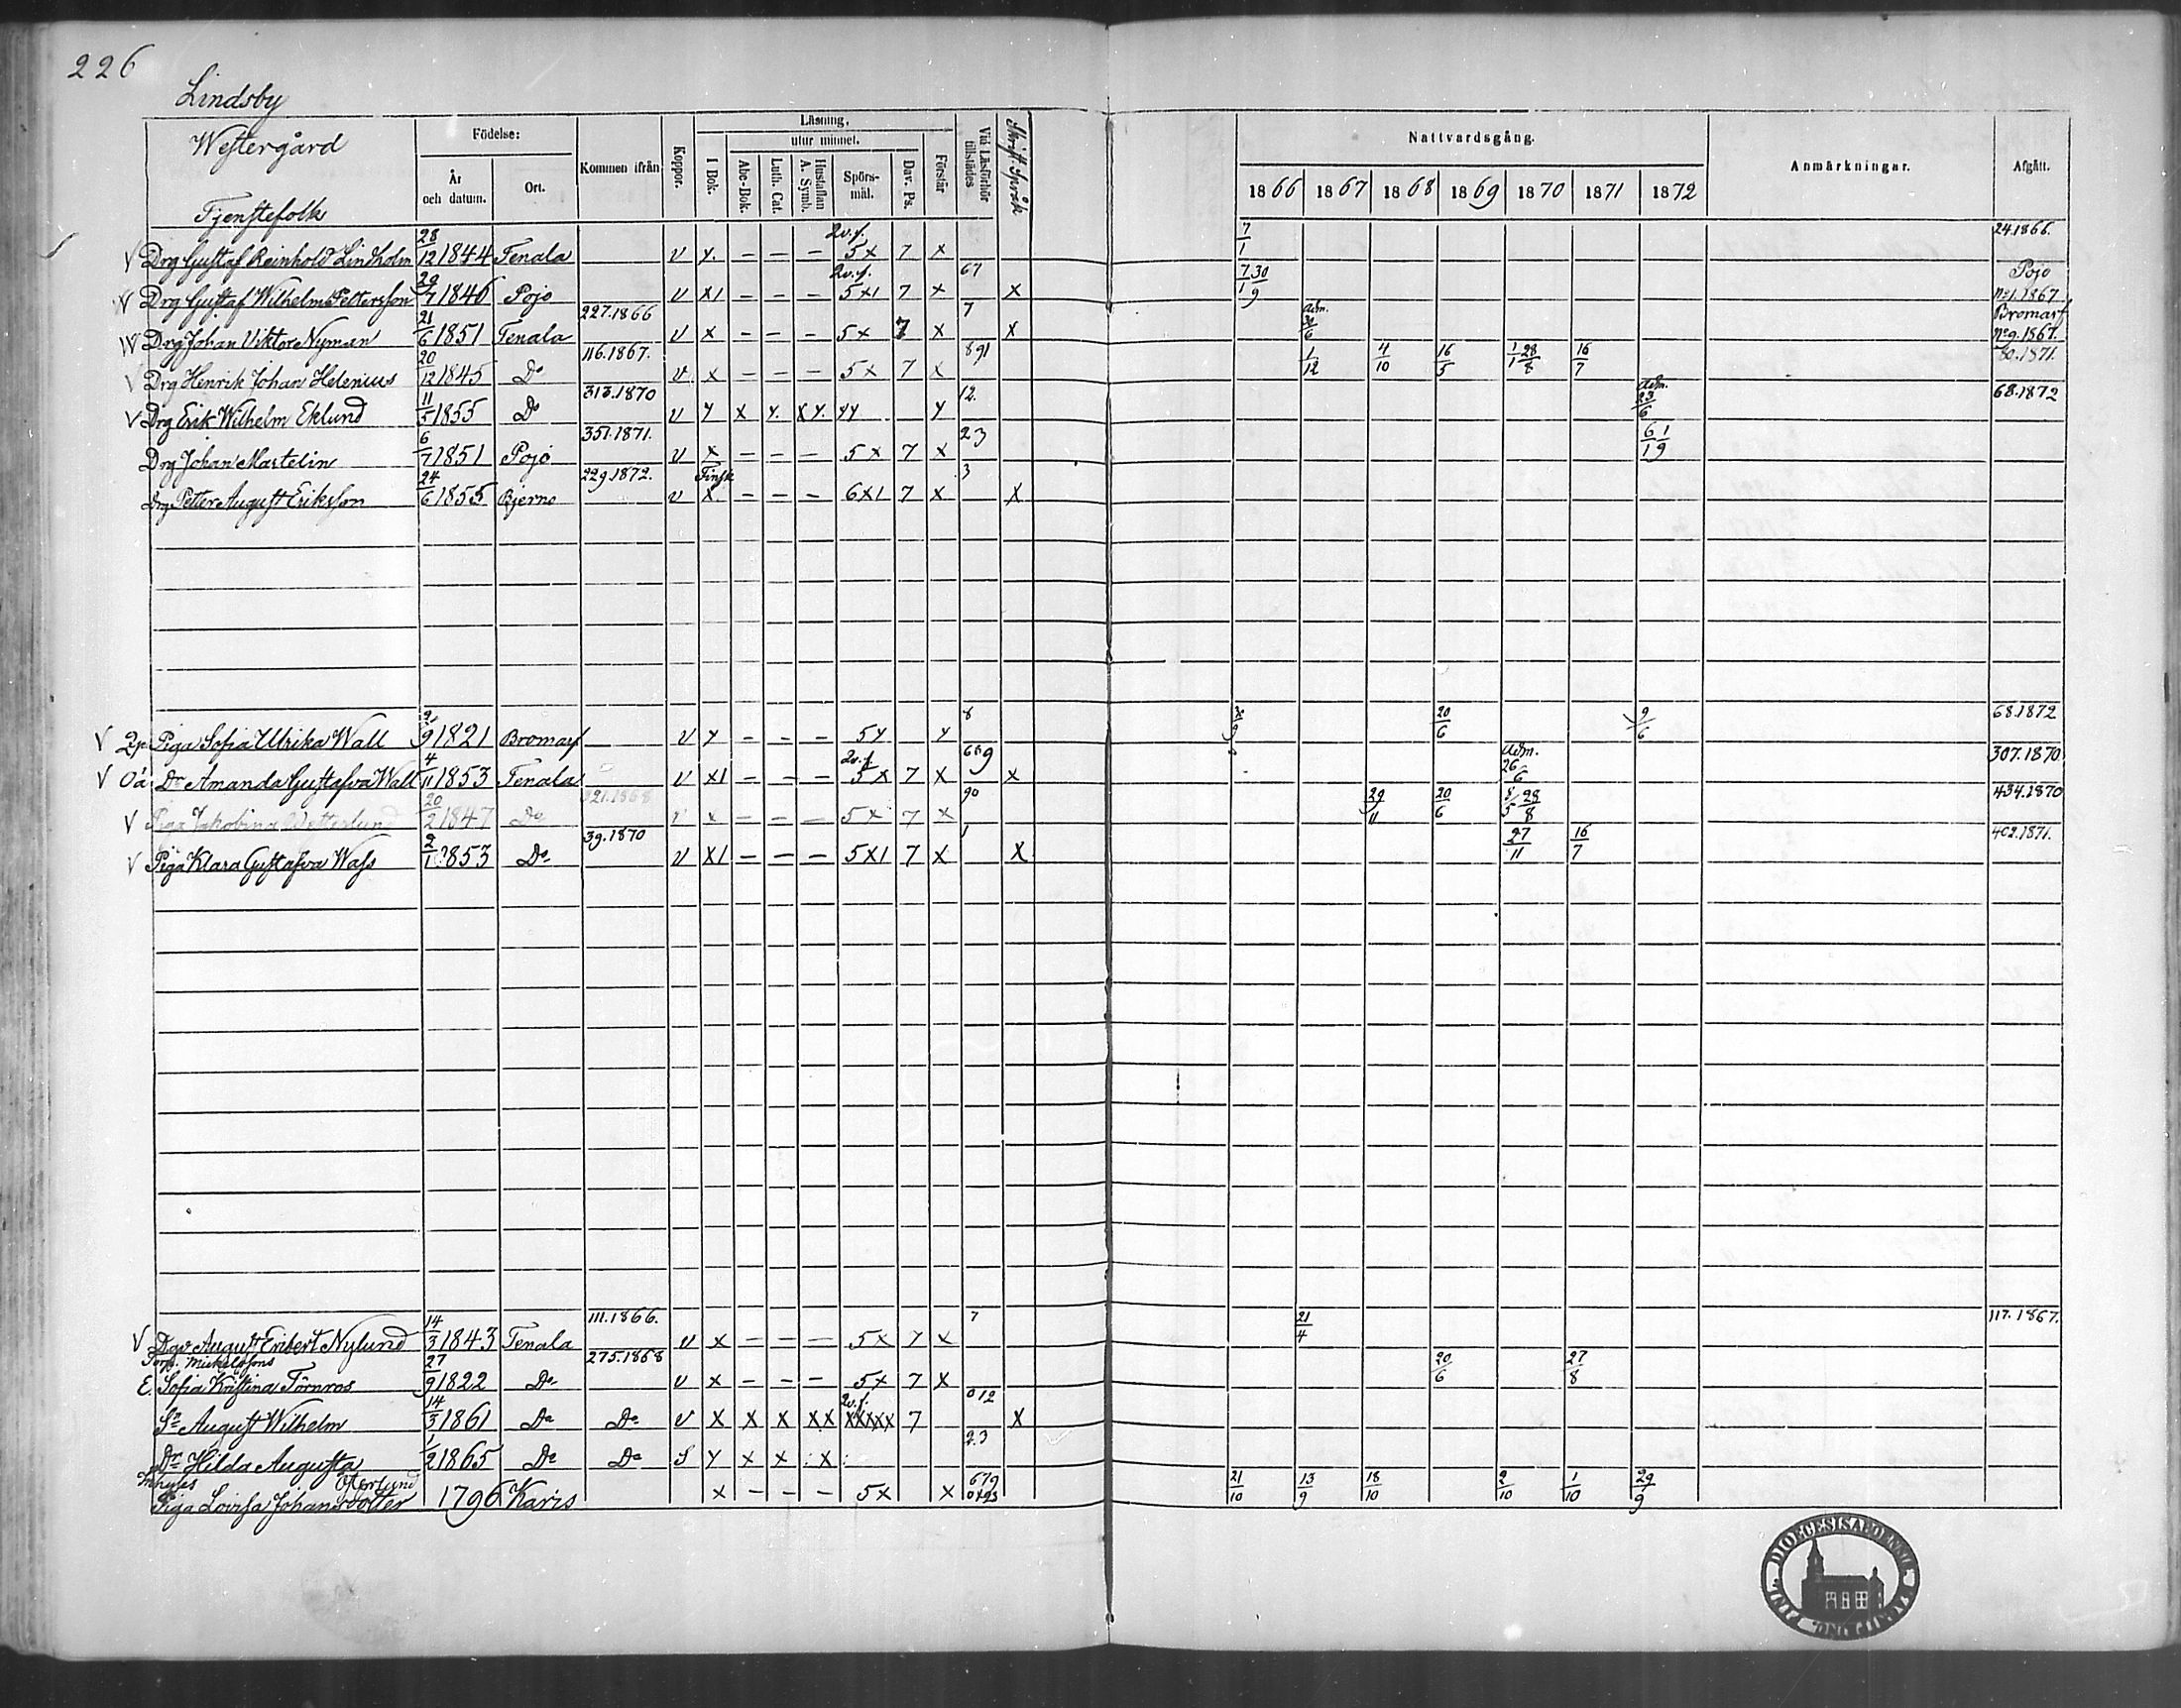 226
Lindsby
Westergård
Tjenstefolk
Födelse:
År och datum.
Ort.
Kommen ifrån
Koppor.
Läsning,
utur minnet.
I Bok.
Abc-Bok.
Luth. Cat.
Hustaflan A. Symb.
Spörs-mål.
Dav. Ps.
Förstår
Vid Läsförhör tillstädes
Skrift. Språk
Nattvardsgång.
1866 1867 1868 1869 1870 1871 1872
Anmärkningar.
Afgått.
V Drg Gustaf Reinhold Lindholm 28/12 1844 Tenala v y. – – – 2v.f. 5x 7 x 7/1 24.1866.
V Drg Gustaf Wilhelm Pettersson 29/7 1846 Pojo v x1 – – – 2v.f. 5x1 7 x 67 x 7/1 30/9 Pojo No 1.1867
V Drg Johan Viktor Nyman 21/6 1851 Tenala 227.1866 v x – – – 5x 7 x 7 x adm. 30/6 Bromarf No 9.1867.
V Drg Henrik Johan Helenius 20/12 1845 Do 116.1867. v x – – – 5x 7 x 891 1/12 4/10 16/5 1/1 28/8 16/7 80.1871.
V Drg Erik Wilhelm Eklund 11/5 1855 Do 313.1870 v y x y. x y. yy y 12. adm. 23/6 68.1872
Drg Johan Martelin 6/7 1851 Pojo 351.1871. v x – – – 5x 7 x 23 6/1 1/9
Drg Petter August Eriksson 24/6 1855 Bjerno 229.1872. v Finsk x – – – 6x1 7 x 3 x
V 2p Piga Sofia Ulrika Wall 2/9 1821 Bromarf v y – – – 5y y 8 30/9 20/6 9/6 68.1872
V Oä Dr Amanda Gustafva Wall 4/11 1853 Tenala v x1 – – – 2v.f. 5x 7 x 669 x adm. 26/6 307.1870
V Piga Jakobina Wetterlund 20/2 1847 Do 321.1868 v x – – – 5x 7 x 90 29/11 20/6 8/5 28/8 434.1870
V Piga Klara Gustafva Wass 2/1 1853 Do 39.1870 v x1 – – – 5x1 7 x 1 x 27/11 16/7 402.1871.
V Dgv August Eribert Nylund 14/3 1843 Tenala 111.1866. v x – – – 5x 7 x 7 21/4 117.1867.
Torp. Mickelssons
E. Sofia Kristina Törnros 27/9 1822 Do 275.1868 v x – – – 5x 7 x 20/6 27/8
Sn August Wilhelm 14/3 1861 Do Do v x x x xx 2v.f. xxxxx 7 012 x
Dr Hilda Augusta 1/2 1865 Do Do S y x x x 23
Inhyses Österlund
Piga Lovisa Johansdotter 1796 Karis x – – – 5x x 679 21/10 13/9 18/10 2/10 1/10 29/9